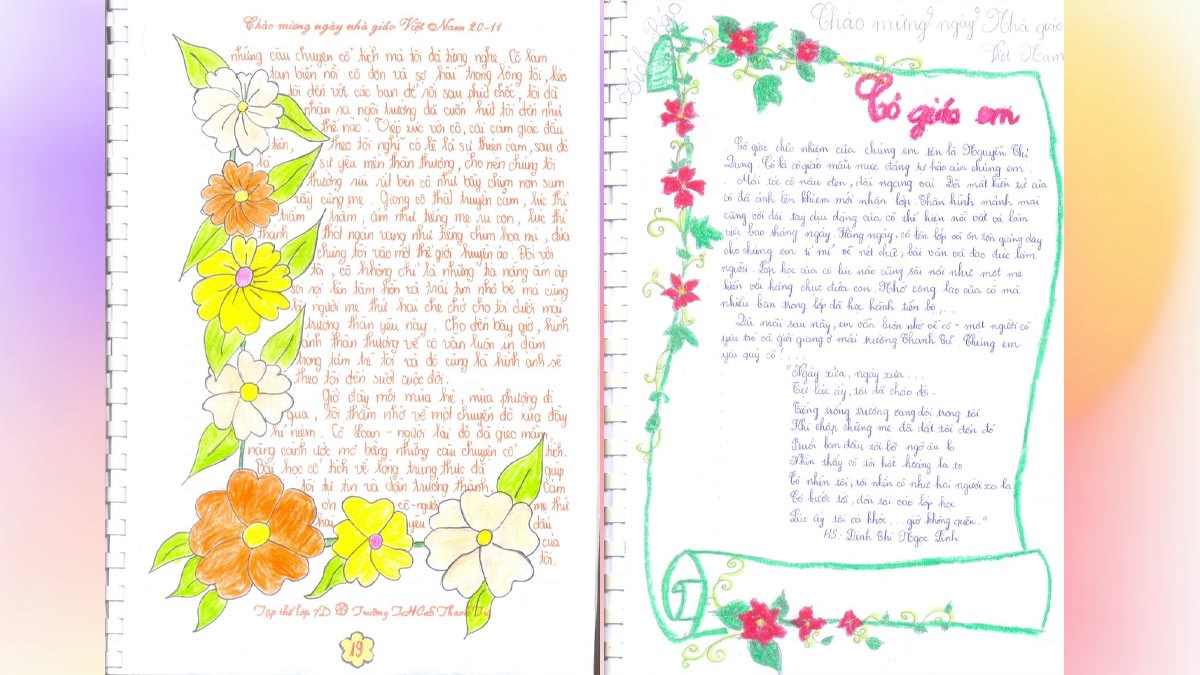 Chào mừng ngày nhà giáo Việt Nam 20-11
những câu chuyện cổ tích mà tôi đã từng nghe. Cô làm
tan biến nỗi cô đơn và sợ hãi trong lòng tôi, kéo
tôi đến với các bạn để rồi sau phút chốc, tôi đã
nhận ra ngôi trường đã cuốn hút tôi đến như
thế nào. Tiếp xúc với cô, cái cảm giác đầu
tiên, theo tôi nghĩ có lẽ là sự thiện cảm, sau đó
là sự yêu mến thân thương, cho nên chúng tôi
thường ríu rít bên cô như bầy chim non sum
vầy cùng mẹ. Giọng cô thật truyền cảm, lúc thì
trầm trầm, ấm như tiếng mẹ ru con, lúc thì
thánh thót ngân vang như tiếng chim họa mi, đưa
chúng tôi vào một thế giới huyền ảo. Đối với
tôi, cô không chỉ là những tia nắng ấm áp
soi rọi lên tâm hồn và trái tim nhỏ bé mà cũng
là người mẹ thứ hai che chở cho tôi dưới mái
trường thân yêu này. Cho đến bây giờ, hình
ảnh thân thương về cô vẫn luôn in đậm
trong tâm trí tôi và đó cũng là hình ảnh sẽ
theo tôi đến suốt cuộc đời.
Giờ đây mỗi mùa hè, mùa phượng đi
qua, tôi thầm nhớ về một chuyến đò xưa đầy
kỉ niệm. Cô Loan - người lái đò đã gieo mầm
nàng cạnh ước mơ bằng những câu chuyện cổ tích.
Bài học cổ tích về lòng trung thực đã giúp
tôi tự tin và dần trưởng thành. Cảm
ơn cô - người mẹ thứ
hai yêu dấu
của
tôi.
Tập thể lớp 7D Trường THCS Thanh
19
Chào mừng ngày Nhà giáo
Việt Nam
Cô giáo em
Cô giáo chủ nhiệm của chúng em tên là Nguyễn Thị
Dung. Cô là cô giáo mẫu mực đáng tự hào của chúng em.
Mái tóc cô nâu đen, dài ngang vai. Đôi mắt hiền từ của
cô đã ánh lên khi em mới nhận lớp. Thân hình mảnh mai
cùng với đôi tay dịu dàng của cô thể hiện nỗi vất vả làm
việc bao tháng ngày. Hằng ngày, cô lên lớp và ôn tồn giảng dạy
cho chúng em tỉ mỉ về nét chữ, bài văn và đạo đức làm
người. Lớp học của cô lúc nào cũng sôi nổi như một mẹ
hiền với hàng chục đứa con. Nhờ công lao của cô mà
nhiều bạn trong lớp đã học hành tiến bộ,...
Dù mãi sau này, em vẫn luôn nhớ về cô - một người cô
yêu trò và giỏi giang ở mái trường Thanh Cư. Chúng em
yêu quý cô!...
"Ngày xửa, ngày xưa...
Từ lúc ấy, tôi đã chào đó.
Tiếng trống trường vang dội trong tôi
Khi chập chững mẹ đã dắt tôi đến đó
Buổi ban đầu tôi bỡ ngỡ âu lo
Nhìn thấy cô tôi hốt hoảng la to
Cô nhìn tôi, tôi nhìn cô như hai người xa lạ
Cô bước tới, đón tôi vào lớp học
Lúc ấy tôi cả khóc...giờ không quên."
HS: Đinh Thị Ngọc Linh